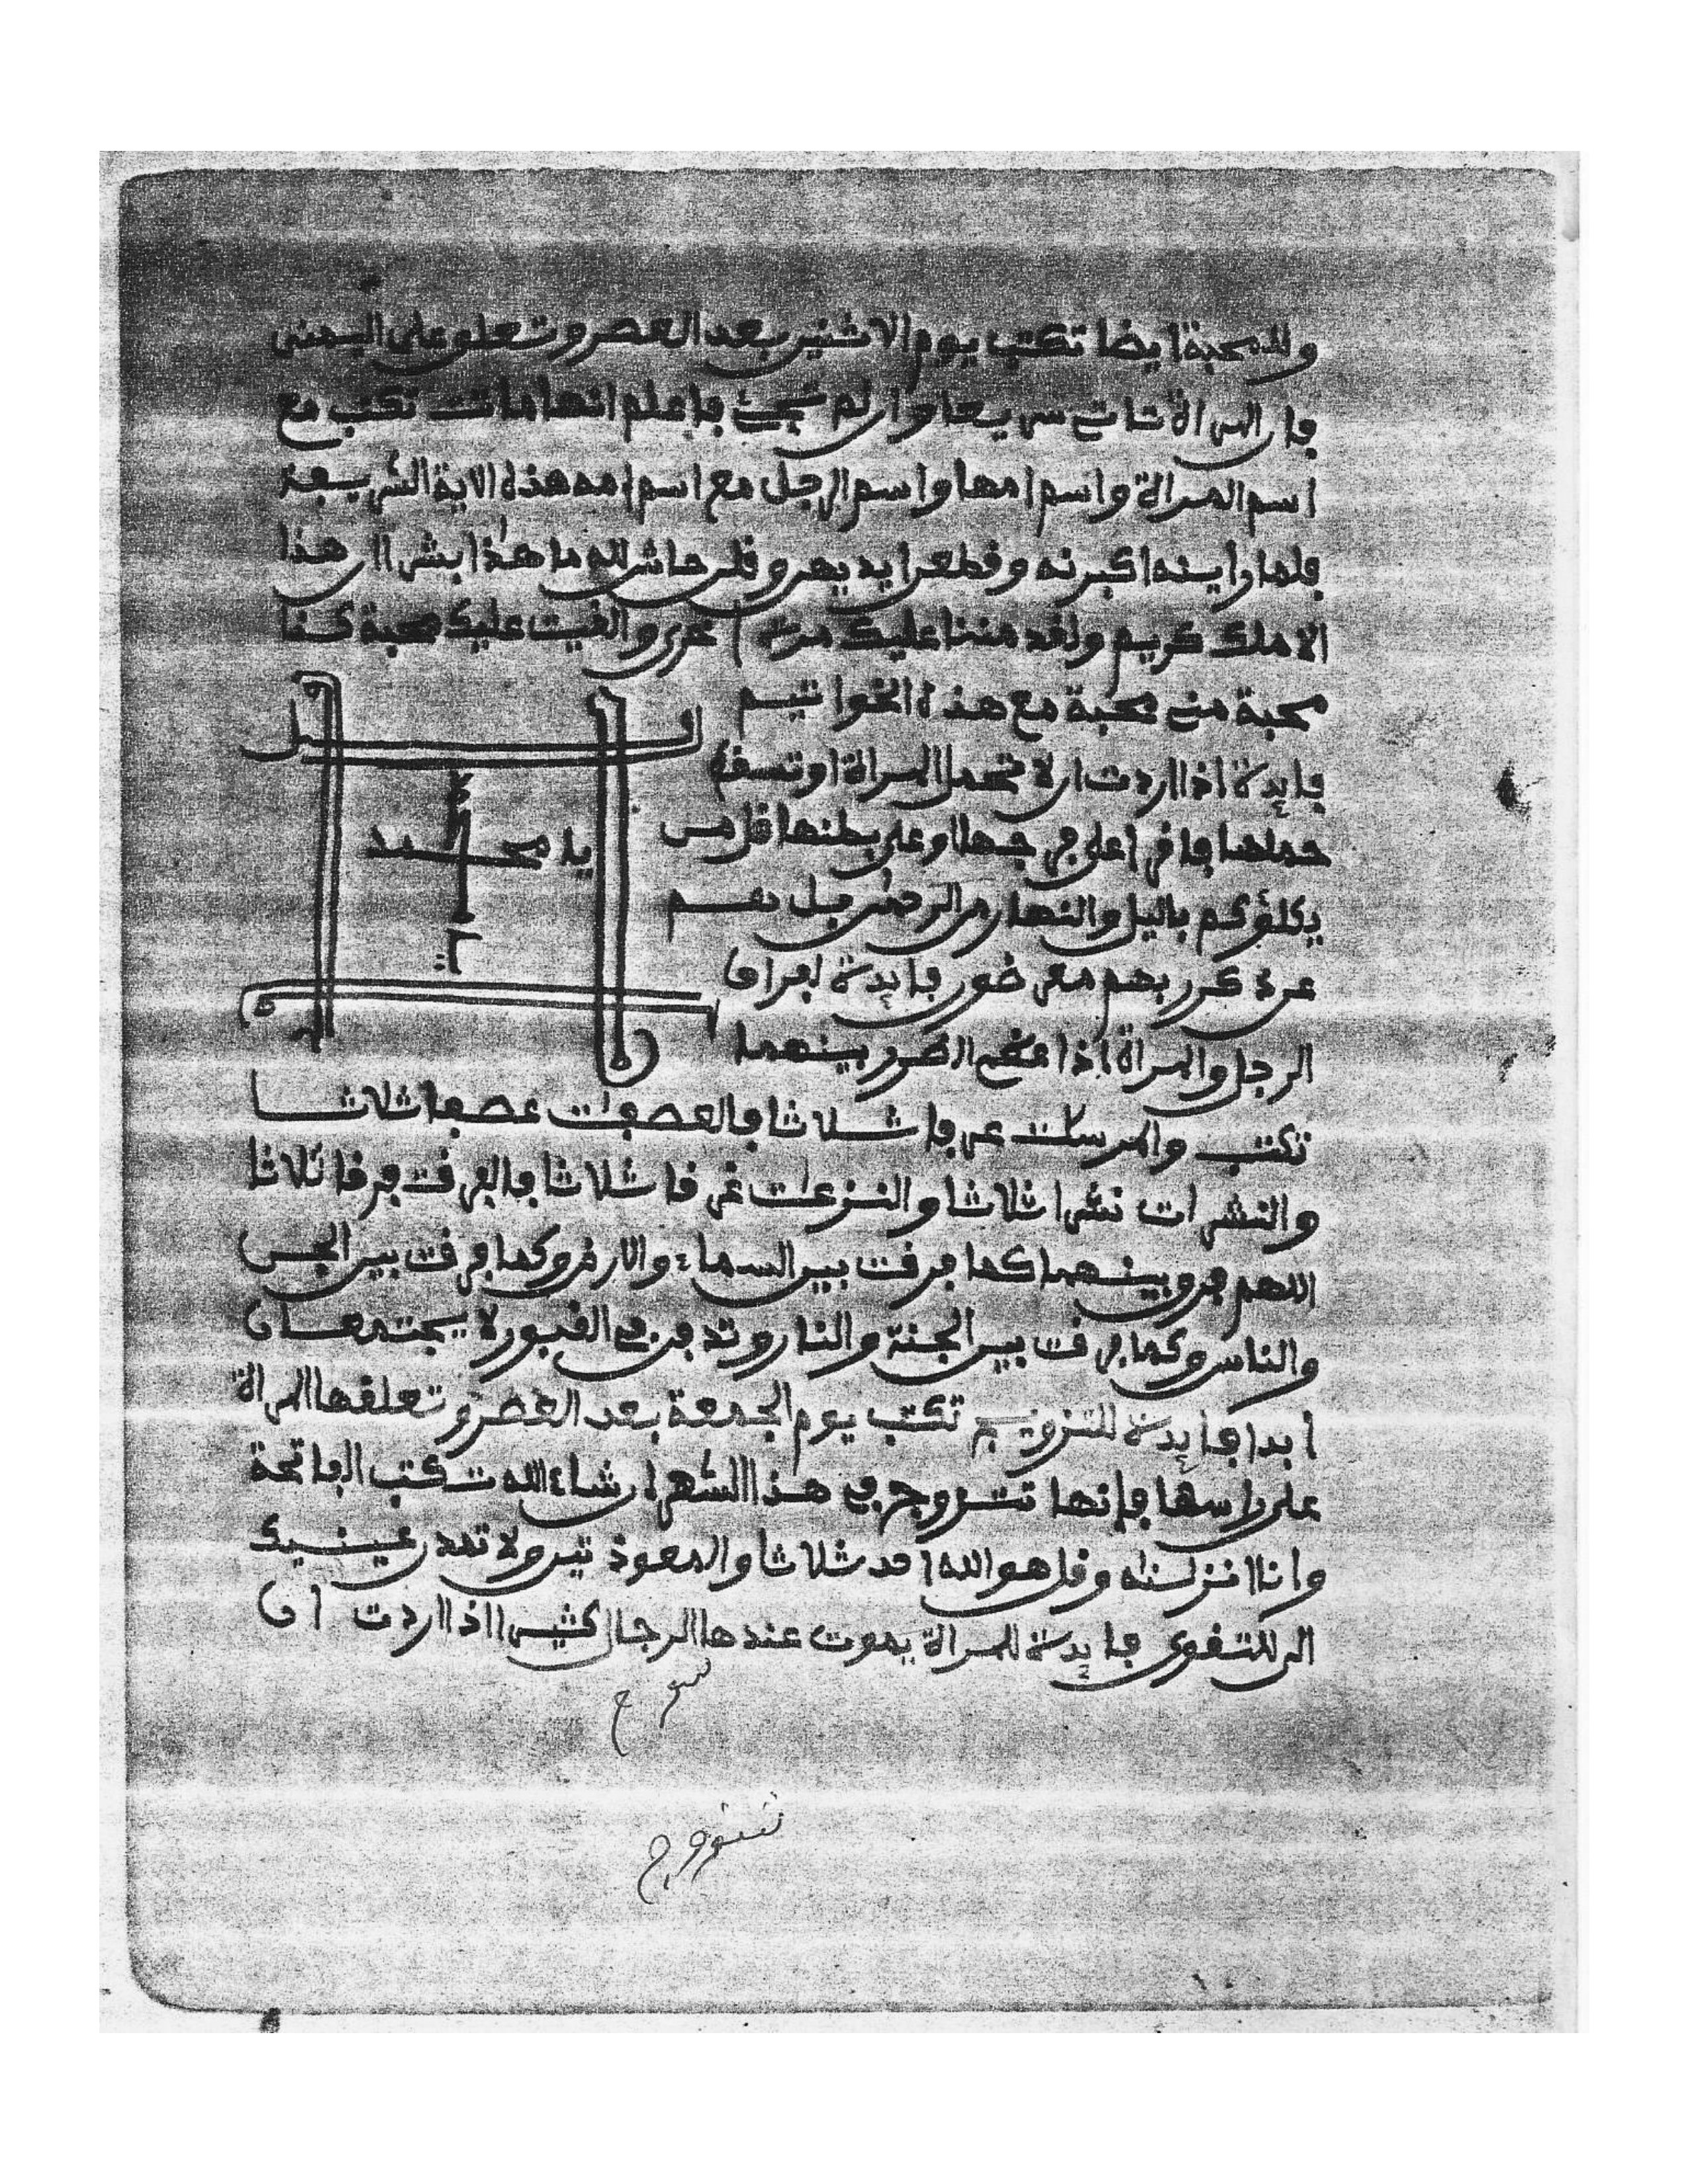 وللمحبة ايضا تكتب يوم الاثنين بعد العصر وتعلو على اليمنى
فان المراة تاتي سريعا وان لم تجيء فاعلم انها ماتت تكتب مع
اسم المراة واسم امها واسم الرجل مع اسم امه هذه الاية الشريفة
فلما راينه اكبرنه وقطعن ايديهن وقلن حاش لله ما هذا بشر ان هذا
الا ملك كريم ولقد مننا عليك مرة اخرى والقيت عليك محبة كذا
محبة مني محبة مع هذه الخواتيم
فايدة اذا اردت ان لا تحمل المراة او تسقط
حملها فاقرا على فرجها او على بطنها قل من
يكلؤكم باليل والنهار من الرحمن بل هم
عن ذكر ربهم معرضون فايدة لفراق
الرجل والمراة اذا عظم الضرر بينهما
تكتب والمرسلت عرفا ثلاثا فالعصفت عصفا ثلاثا
والنشرات نشرا ثلاثا والنزعت غرقا ثلاثا فالفرقت فرقا ثلاثا
اللهم فرق بينهما كما فرقت بين السماء والارض وكما فرقت بين الجن
والناس وكما فرقت بين الجنة والنار وتدفن في القبور لا يجتمعان
ابدا فايدة للتزويج تكتب يوم الجمعة بعد العصر وتعلقها المراة
على راسها فإنها تتزوج في هذا الشهر ان شاء الله تكتب الفاتحة
وانا انزلنه وقل هو الله احد ثلاثا والمعوذتين ولا تمدن عينيك
الى للتقوى فايدة للمراة يموت عندها الرجال كثيرا اذا اردت ان
يا محمد
تتزوج